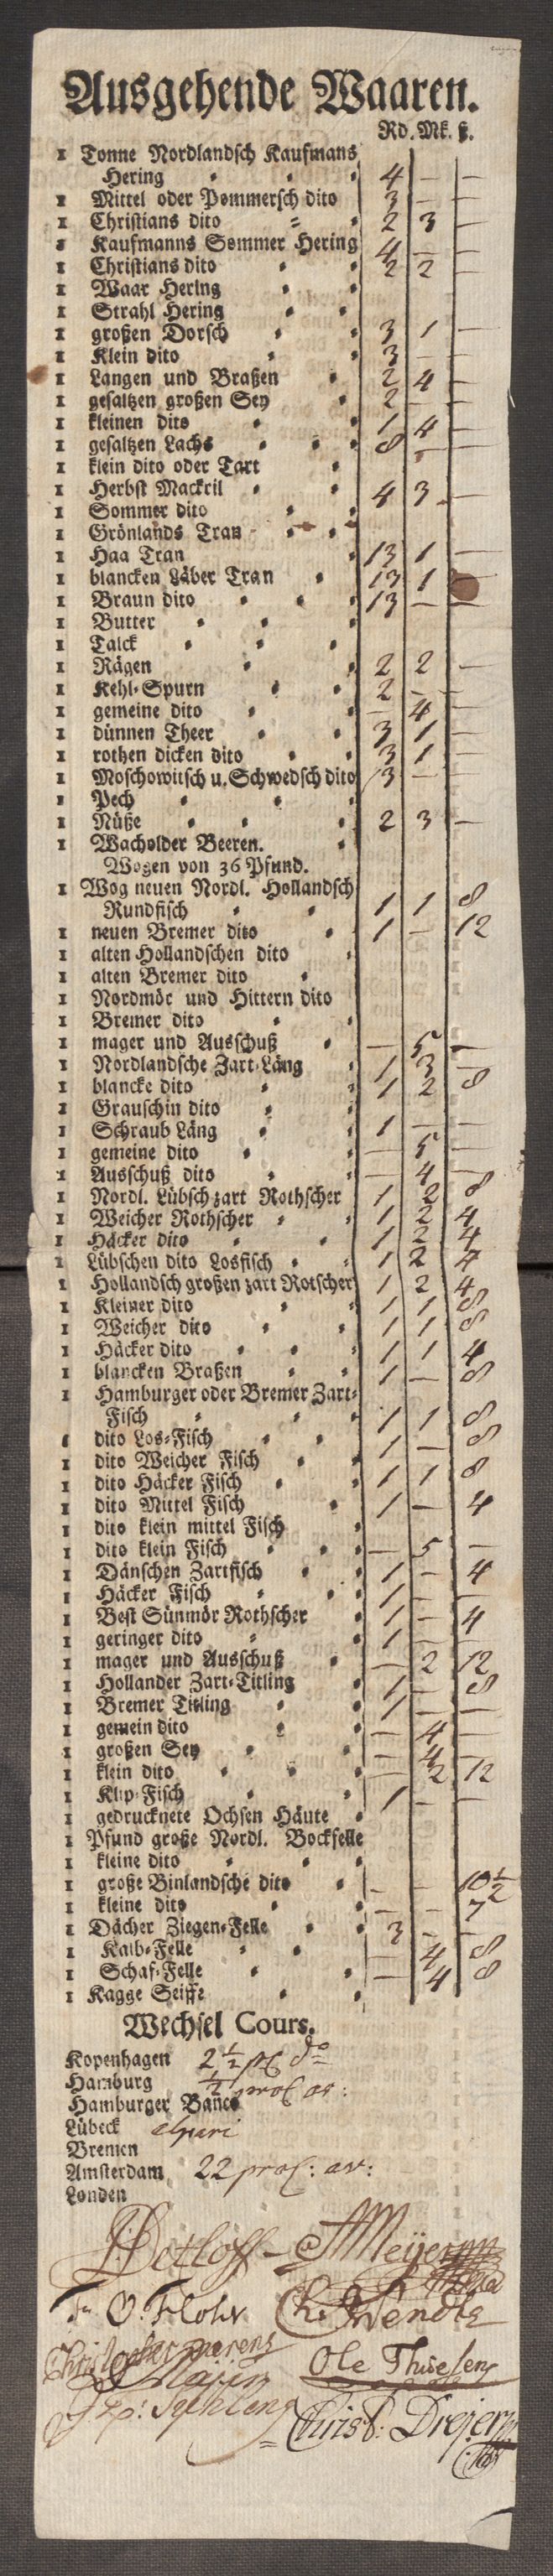 Ausgehende Waaren.
Rd. Mk. ß.
1 Tonne Nordlandsch Kaufmans
Hering 4 — —
1 Mittel oder Pommersch dito 3 — —
1 Christians dito 2 3 —
1 Kaufmanns Sommer Hering 4 — —
1 Christians dito 2 2 —
1 Waar Hering
1 Strahl Hering
1 großen Dorsch 3 1 —
1 Klein dito 3 — —
1 Langen und Braßen 2 4 —
1 gesaltzen großen Sey 2 — —
1 kleinen dito 1 4 —
1 gesaltzen Lachs 8 — —
1 klein dito oder Tart
1 Herbst Mackril 4 3 —
1 Sommer dito
1 Grönlands Tran
1 Haa Tran 13 1 —
1 blancken Läber Tran 13 1
1 Braun dito 13 — —
1 Butter
1 Talck
1 Rägen 2 2 —
1 Kehl-Spurn 2 — —
1 gemeine dito — 4 —
1 dünnen Theer 3 1 —
1 rothen dicken dito 3 1 —
1 Moschowitsch u. Schwedsch dito 3 — —
1 Pech
1 Nüße 2 3 —
1 Wacholder Beeren.
Wogen von 36 Pfund.
1 Wog neuen Nordl. Hollandsch
Rundfisch 1 1 8
1 neuen Bremer dito 1 — 12
1 alten Hollandschen dito
1 alten Bremer dito
1 Nordmör und Hittern dito
1 Bremer dito
1 mager und Ausschuß — 5 —
1 Nordlandsche Zart-Läng 1 3 —
1 blancke dito 1 2 8
1 Grauschin dito
1 Schraub Läng 1 — —
1 gemeine dito — 5 —
1 Ausschuß dito — 4 —
1 Nordl. Lübsch zart Rothscher 1 2 8
1 Weicher Rothscher 1 2 4
1 Häcker dito 1 2 4
1 Lübschen dito Losfisch 1 2 4
1 Hollandsch großen zart Rotscher 1 2 4
1 Kleiner dito 1 1 8
1 Weicher dito 1 1 8
1 Häcker dito 1 1 4
1 blancken Braßen 1 — 8
1 Hamburger oder Bremer Zart-
Fisch 1 1 8
1 dito Los-Fisch 1 — 8
1 dito Weicher Fisch
1 dito Häcker Fisch 1 1 8
1 dito Mittel Fisch 1 — 4
1 dito klein mittel Fisch
1 dito klein Fisch — 5 —
1 Dänschen Zartfisch 1 — 4
1 Häcker Fisch 1 — —
1 Best Sünmör Rothscher 1 — 4
1 geringer dito 1 — —
1 mager und Ausschuß — 2 12
1 Hollander Zart-Titling 1 — 8
1 Bremer Titling 1 — —
1 gemein dito — 4 —
1 großen Sey — 4 —
1 klein dito — 2 12
1 Klip-Fisch 1 — —
1 gedrucknete Ochsen Häute
1 Pfund große Nordl. Bockfelle
1 kleine dito
1 große Binlandsche dito — — 10½
1 kleine dito — — 7
1 Dächer Ziegen-Felle 3 — —
1 Kalb-Felle — 4 8
1 Schaf-Felle — 4 8
1 Kagge Seiffe
Wechsel Cours.
Kopenhagen 2½ pC do
Hamburg ½ proC av:
Hamburger Banco
Lübeck alpari
Bremen
Amsterdam 22 proC: av:
Londen
Detloff Meÿer
O. Flohr Wendte
Ole Thuesen
Christ: Drejer